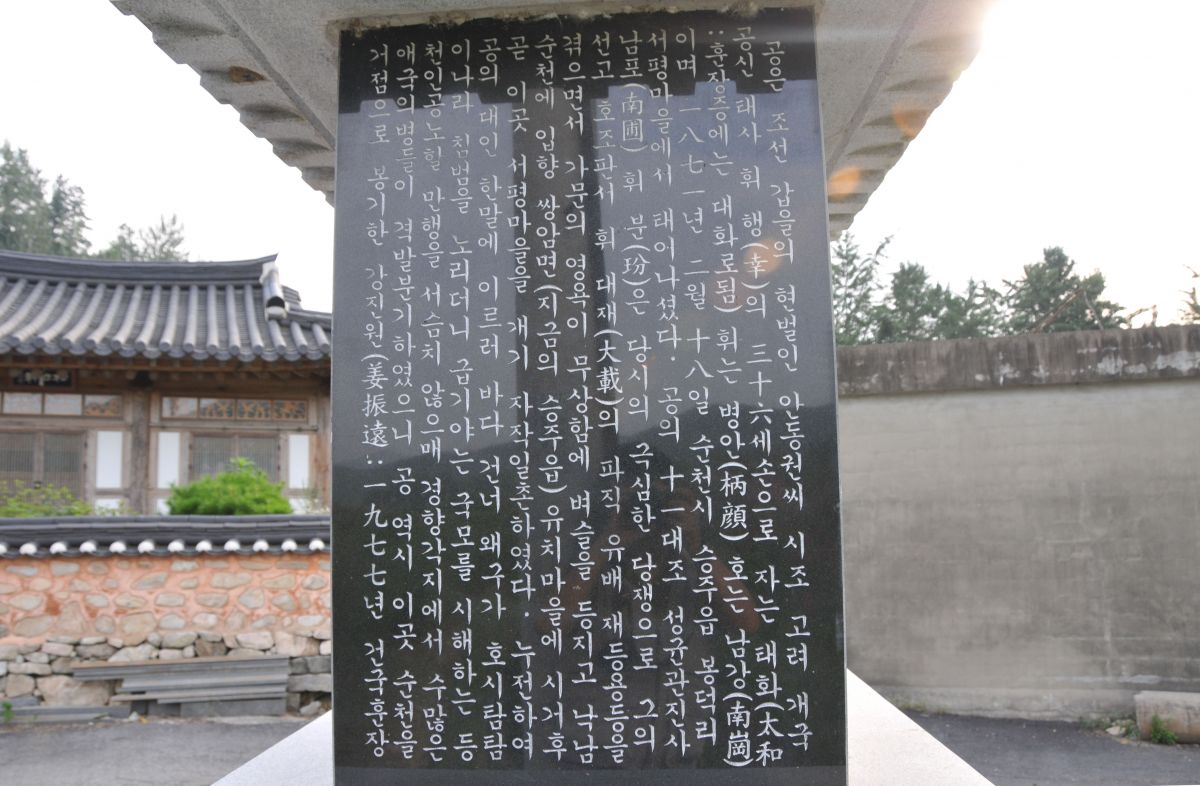 공은 조선 갑을의 현벌인 안동권씨 시조 고려 개국
공신 태사 휘 행(幸)의 三十六세손으로 자는 태화(太和
:훈장증에는 대화로됨) 휘는 병안(柄顔) 호는 남강(南崗)
이며 一八七一년 二월 十八일 순천시 승주읍 봉덕리
서평마을에서 태어나셨다. 공의 十一대조 성균관진사
남포(南圃) 휘 분(玢)은 당시의 극심한 당쟁으로 그의
선고 호조판서 휘 대재(大載)의 파직 유배 재등용등을
겪으면서 가문의 영욕이 무상함에 벼슬을 등지고 낙남
순천에 입향 쌍암면(지금의 승주읍)유치마을에 시거후
곧 이곳 서평마을을 개기 자작일촌하였다. 누전하여
공의 대인 한말에 이르러 바다 건너 왜구가 호시탐탐
이나라 침범을 노리더니 급기야는 국모를 시해하는 등
천인공노할 만행을 서슴치 않으매 경향각지에서 수많은
애국의병들이 격발분기하였으니 공 역시 이곳 순천을
거점으로 봉기한 강진원(姜振遠:一九七七년 건국훈장